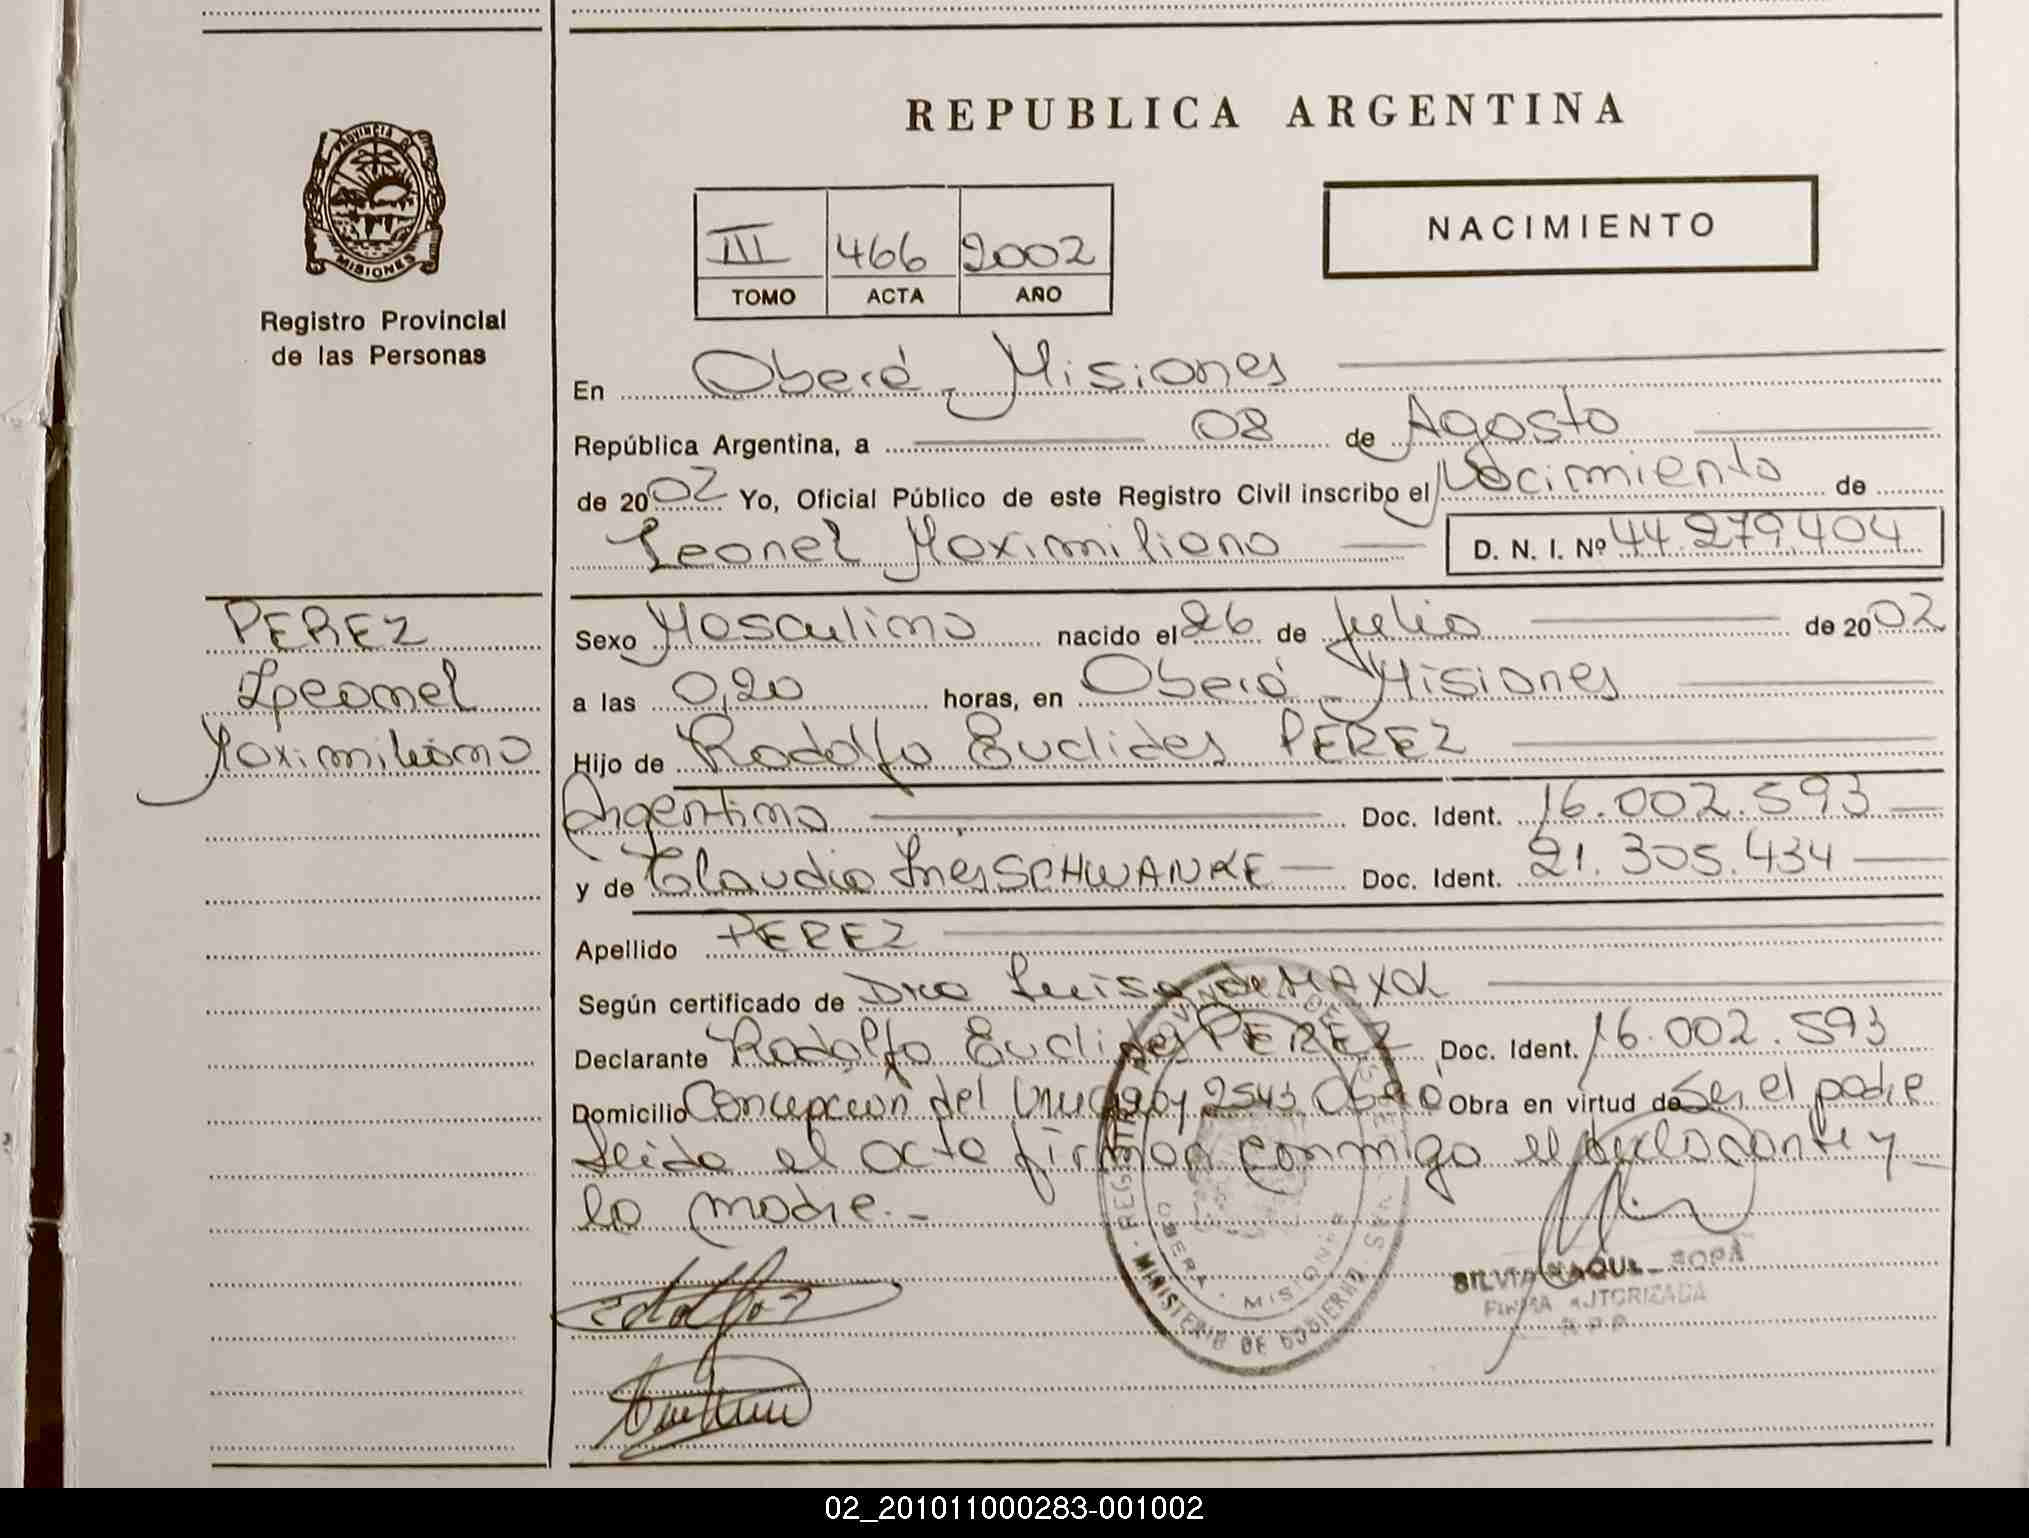 PROVINCIA DE
MISIONES
Registro Provincial
de las Personas
PEREZ
Leonel
Maximiliano
REPUBLICA ARGENTINA
NACIMIENTO
III 466 2002
TOMO ACTA AÑO
En Oberá - Misiones
República Argentina, a 08 de Agosto
de 2002 Yo, Oficial Público de este Registro Civil inscribo el Nacimiento de
Leonel Maximiliano D. N. I. Nº 44.279.404
Sexo Masculino nacido el 26 de Julio de 2002
a las 0,20 horas, en Oberá - Misiones
Hijo de Rodolfo Euclides PEREZ
Argentino Doc. Ident. 16.002.593
y de Claudia Ines SCHWANKE Doc. Ident. 21.305.434
Apellido PEREZ
Según certificado de Dra Luisa de MAYOL
Declarante Rodolfo Euclides PEREZ Doc. Ident. 16.002.593
Domicilio Concepción del Uruguay 2543 Oberá Obra en virtud de Ser el padre
Leida el acta firman conmigo el declarante y
la madre.-
MINISTERIO DE GOBIERNO
OBERA - MISIONES
SILVIA RAQUEL
FIRMA AUTORIZADA
02_201011000283-001002